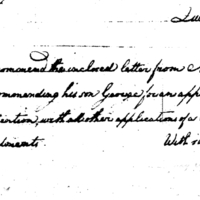 ommend the inclosed letter from
ommending his son George for an app
tention, with all other applications of a
diments. With